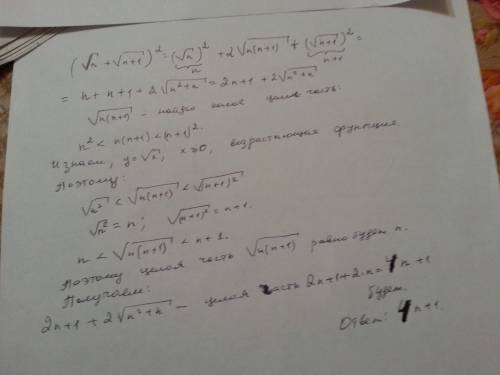 (√n + √(n+1))² = (√n)² + 2√(n(n+1)) + (√(n+1))² =
n n+1
= n + n+1 + 2√(n²+n) = 2n+1 + 2√(n²+n)
√(n(n+1)) – найдю какая целая часть:
n² < n(n+1) < (n+1)².
И знаем, y=√x, x≥0, возрастающая функция.
Поэтому:
√n² < √(n(n+1)) < √(n+1)²
√n² = n; √(n+1)² = n+1.
n < √(n(n+1)) < n+1.
Поэтому целая часть √(n(n+1)) равно будет n.
Получаем:
2n+1 + 2√(n²+n) – целая часть 2n+1+2·n = 4n+1
будет.
Ответ: 4n+1.